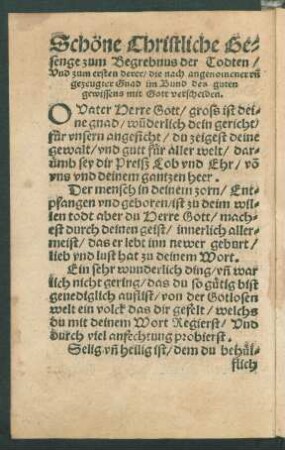 Schöne Christliche Ge-
senge zum Begrebnus der Todten /
Und zum ersten derer / die nach angenomener vñ
gezeugter Gnad im Bund des guten
gewissens mit Gott verscheiden.
O Vater Herre Gott / gross ist dei-
ne gnad / wũderlich dein gericht /
für vnsern angesicht / du zeigest deine
gewalt / vnd gutt für aller welt / dar-
umb sey dir Preiß Lob vnd Ehr / võ
vns vnd deinem gantzen heer.
Der mensch in deinem zorn / Ent-
pfangen vnd geboren / ist zu deim wil-
len todt aber du Herre Gott / mach-
est durch deinen geist / innerlich aller-
meist / das er lebt inn newer geburt /
lieb vnd lust hat zu deinem Wort.
Ein sehr wunderlich ding / vñ war
lich nicht gering / das du so gütig bist
genediglich auslist / von der Gotlosen
welt ein volck das dir gefelt / welchs
du mit deinem Wort Regierst / Und
durch viel anfechtung probierst.
Selig vñ heilig ist / dem du behülf-
flich